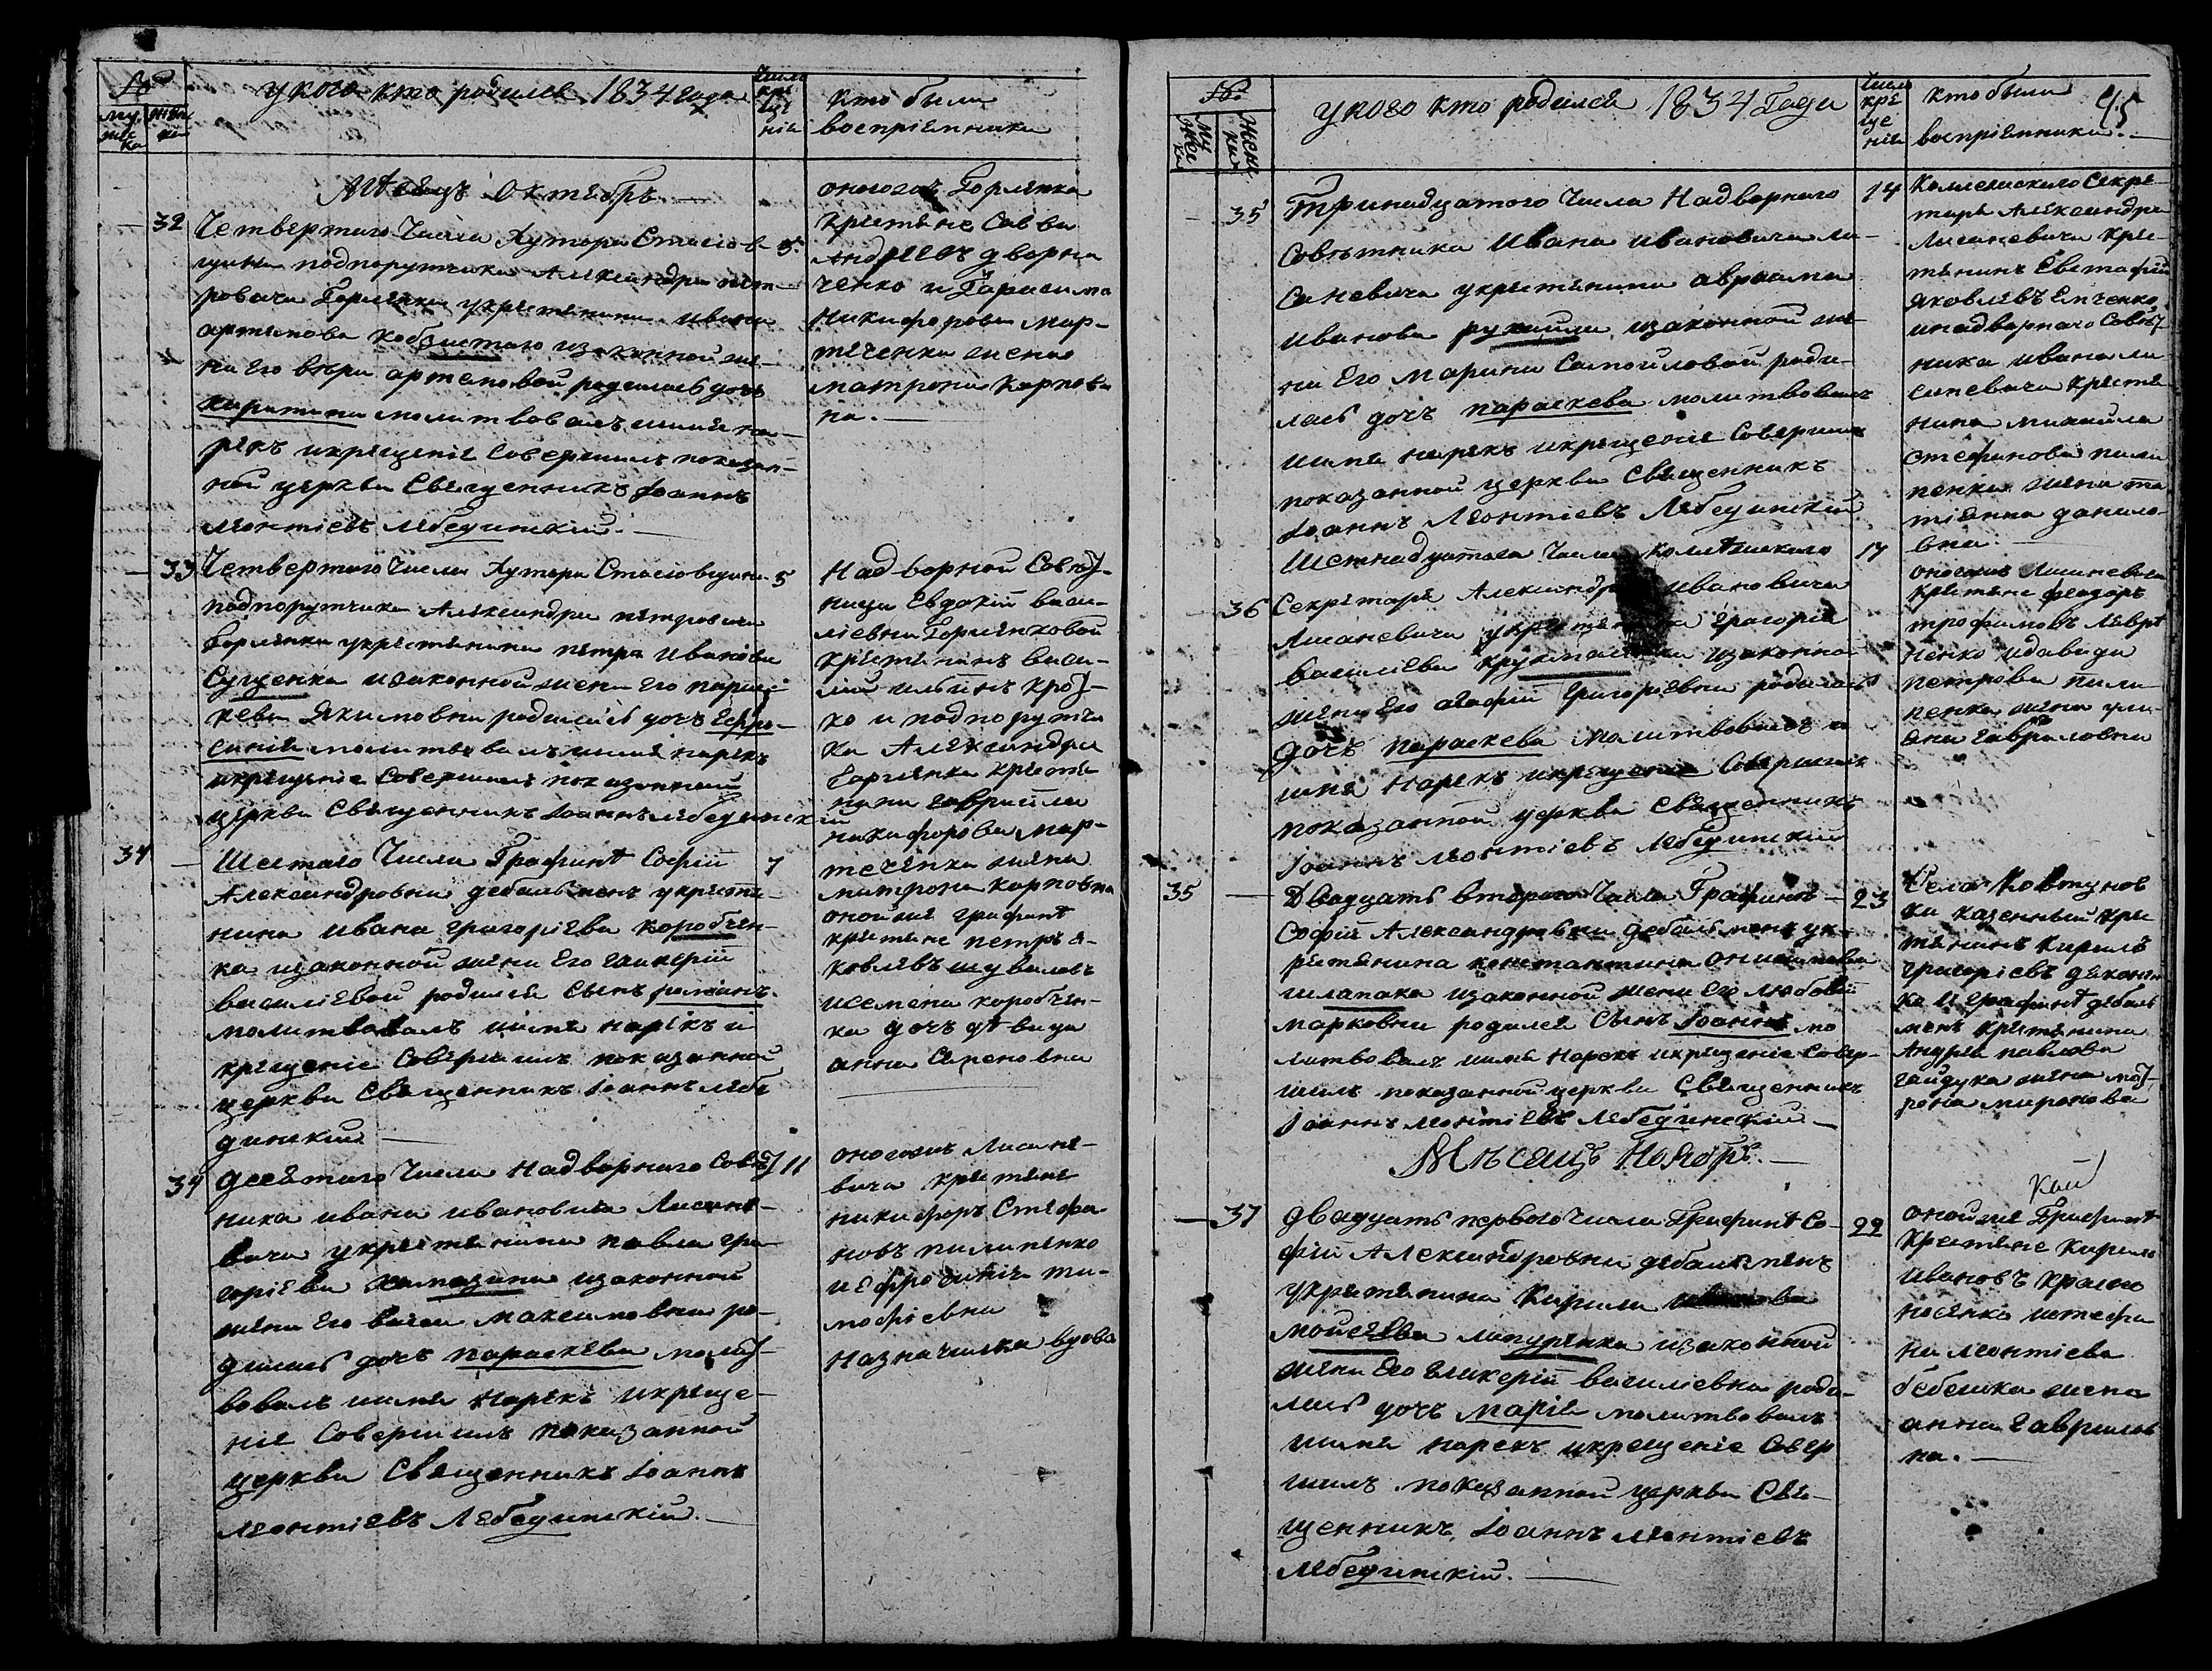 №
му
жес
ка
жен
ска
у кого кто родился 1834 года
Число
кре
ще
нія
кто были
воспріемники
Месяцъ Октябръ.
32
Четвертаго Числа Хутора Стасов
5
щини подпорутчика Александра пет-
ровича Горленка укрестянина ивана
артемова изаконной же-
ни его вѣри артемовой родилась дочь
харитина молитвовалъ имя на-
рекъ икрещеніе совершилъ показан-
ной церкви Священникъ Іоаннъ
Леонтіевъ Лебединскій.
оногожъ Горленка
крестяне Савва
Андреевъ дворни
ченко и Гарасима
Никифорова мар-
тѣченка жена
матрона Карпов
на.
33
Четвертаго Числа Хутора Стасовщини
5
подпорутчика Александра петровича
Горленка укрестянина петра Иванова
Сущенка изаконной жени его парас-
кеви Якимовни родилась дочь Ефро-
синія молитвовалъ имя нарекъ
икрещеніе Совершилъ показанной
церкви Священникъ Іоаннъ Лебединскій
Надворной Совѣт-
ници Евдокій васи-
ліевни Горленковой
крестянинъ Васи-
лій ильинъ крот-
ко и подпорутчи
ка Александра
Горленка крестя
нина гавриила
никифорова мар-
теченка жена
матрона Карповна
34
Шестаго Числа Графинѣ Софіи
7
Александровни дебальменъ укрестя-
нина ивана григоріева коробчен-
ка изаконной жени Его гликерій
василіевой родился Сынъ романъ
молитвовалъ имя нарекъ и
крещеніе Совершилъ показанной
церкви Священникъ Іоаннъ лебе
динскій
оной же графинѣ
крестяне петръ я-
ковлевъ шуваловъ
исемена коробчен-
ка дочь дѣвица
анна Семеновна
34
десятаго Числа Надворнаго Совѣт
11
ника ивана ивановича Лисане-
вича укрестянина павла гри
горіева изаконной
жени Его васси максимовни ро-
дилась дочь параскева молит-
вовалъ имя нарекъ икреще-
ніе Совершилъ показанной
церкви Священникъ Іоаннъ
Леонтіевъ Лебединскій.
оногожъ Лисане-
вича крестяне
никифоръ Стефа
новъ пилипенко
и ефросинія ти-
мофіевна
вдова
№
му
жес
ка
жен
ка
у кого кто родился 1834 Года
Число
кре
ще
нія
кто были
воспріемники.
45
35
Тринадцатого Числа Надворнаго
14
Совѣтника Ивана Ивановича ли-
саневича укрестянина авраама
иванова изаконной же-
ни Его Марини Самойловой роди-
лась дочь параскева молитвовалъ
имя нарекъ икрещеніе Совершилъ
показанной церкви Священникъ
Іоаннъ Леонтіевъ Лебединскій
Коллежского Секре-
таря Александра
Лисаневича крес-
тянинъ Евстафій
Яковлевъ Емченко
инадворнаго Совѣт
ника ивана ли
саневича крестя
нина михайла
стефанова пили
пенка жена та
тіянна данило
вна.
36
Шестнадцатаго Числа Колежского
17
Секретаря Александра Ивановича
Лисаневича Григорія
василіева изаконной
жени Его агафіи григоріевни родилась
дочь параскева молитвовалъ и
имя нарекъ икрещеніе Совершилъ
показанной церкви Священникъ
Іоаннъ леонтіевъ лебединскій
оногожъ Лисаневича
Крестяне феодоръ
трофимовъ лаврѣ
ненко идавида
петрова пили
пенка жена ули
яна гавриловна
35
Двадцать втораго Числа Графинѣ
23
Софіи Александровни дебальменъ ук-
рестянина константина онисимова
шлапака изаконной жени Его любови
марковни родился Сынъ Іоаннъ мо
литвовалъ имя нарекъ икрещеніе Совер-
шилъ показанной церкви Священникъ
Іоаннъ леонтіевъ Лебединскій.
Села Ковтунов
ки казенный кре
стянинъ Кирилъ
григоріевъ дяконен
ко и графинѣ дебаль
менъ крестянина
Андрея павлова
гайдука жена мат-
рона миронова
Мѣсяцъ Ноябръ.
37
двадцать первого Числа Графинѣ Со-
22
фіи Александровни дебальменъ
укрестянина Кирила
мойсеева лапуренка изаконной
жени Его гликерій василіевна роди-
лась дочь Марія молитвовалъ
имя нарекъ икрещеніе Совер
шилъ показанной церкви Свя-
щенникъ Іоаннъ Леонтіевъ
Лебединскій.
оной же Графинѣ
Крестяне Кирило
Ивановъ красно
носенко истефа
на леонтіева
бебешка жена
анна гаврилов
на.